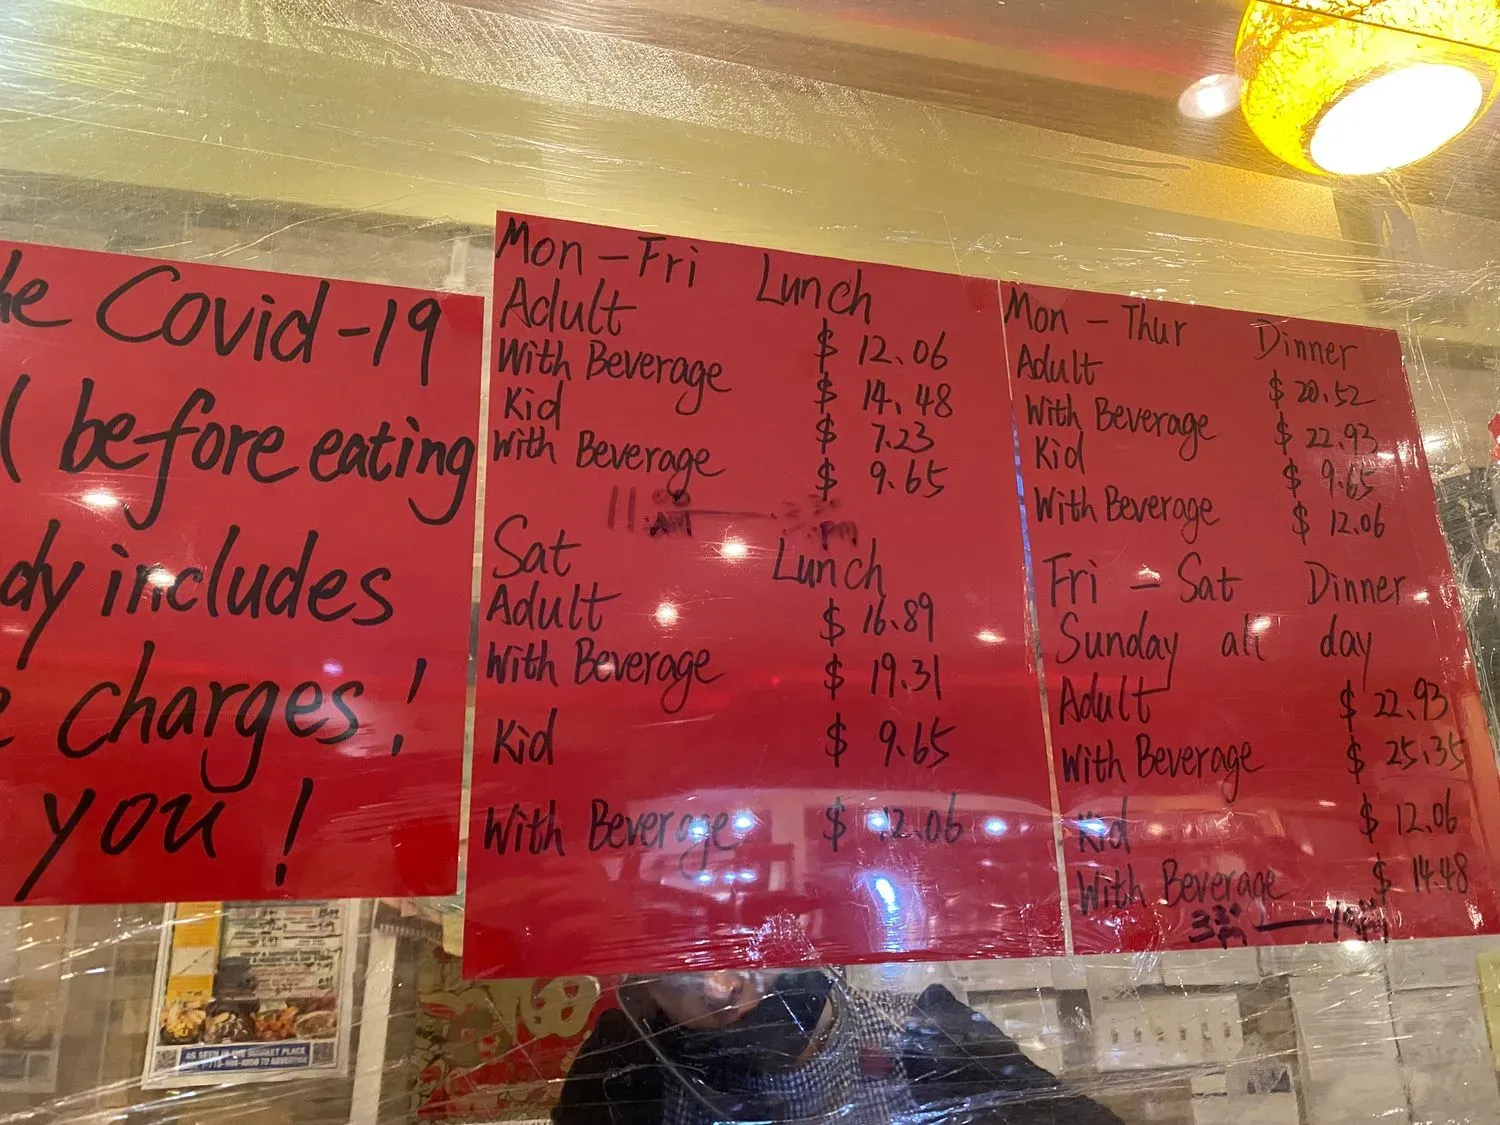 he Covid-19
before eating
dy includes
charges!
you!
Mon-Fri Lunch
Adult $ 12.06
With Beverage $ 14.48
Kid $ 7.23
With Beverage $ 9.65
11 AM PM
Sat Lunch
Adult $ 16.89
With Beverage $ 19.31
Kid $ 9.65
With Beverage $ 12.06
Mon - Thur Dinner
Adult $ 20.52
With Beverage $ 22.93
Kid $ 9.65
With Beverage $ 12.06
Fri - Sat Dinner
Sunday all day
Adult $ 22.93
With Beverage $ 25.35
Kid $ 12.06
With Beverage $ 14.48
AS SEEN IN THE MARKET PLACE